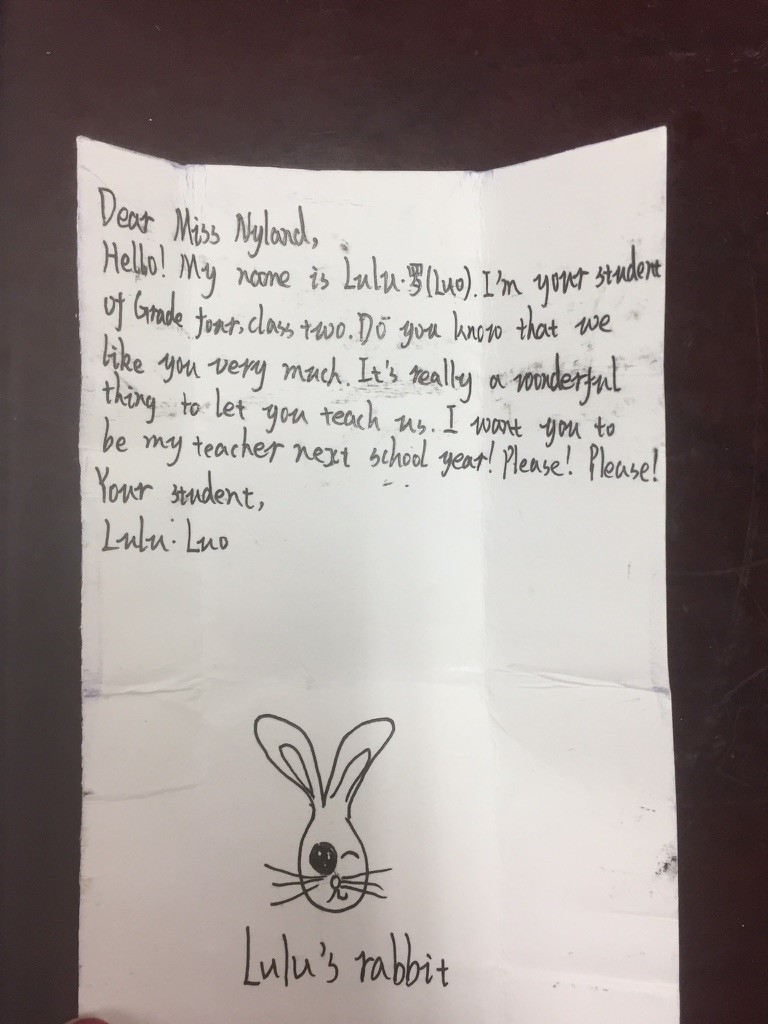 Dear Miss Nyland,
Hello! My name is Lulu·罗(Luo). I'm your student
of Grade four, class two. Do you know that we
like you very much. It's really a wonderful
thing to let you teach us. I want you to
be my teacher next school year! Please! Please!
Your student,
Lulu·Luo
Lulu's rabbit